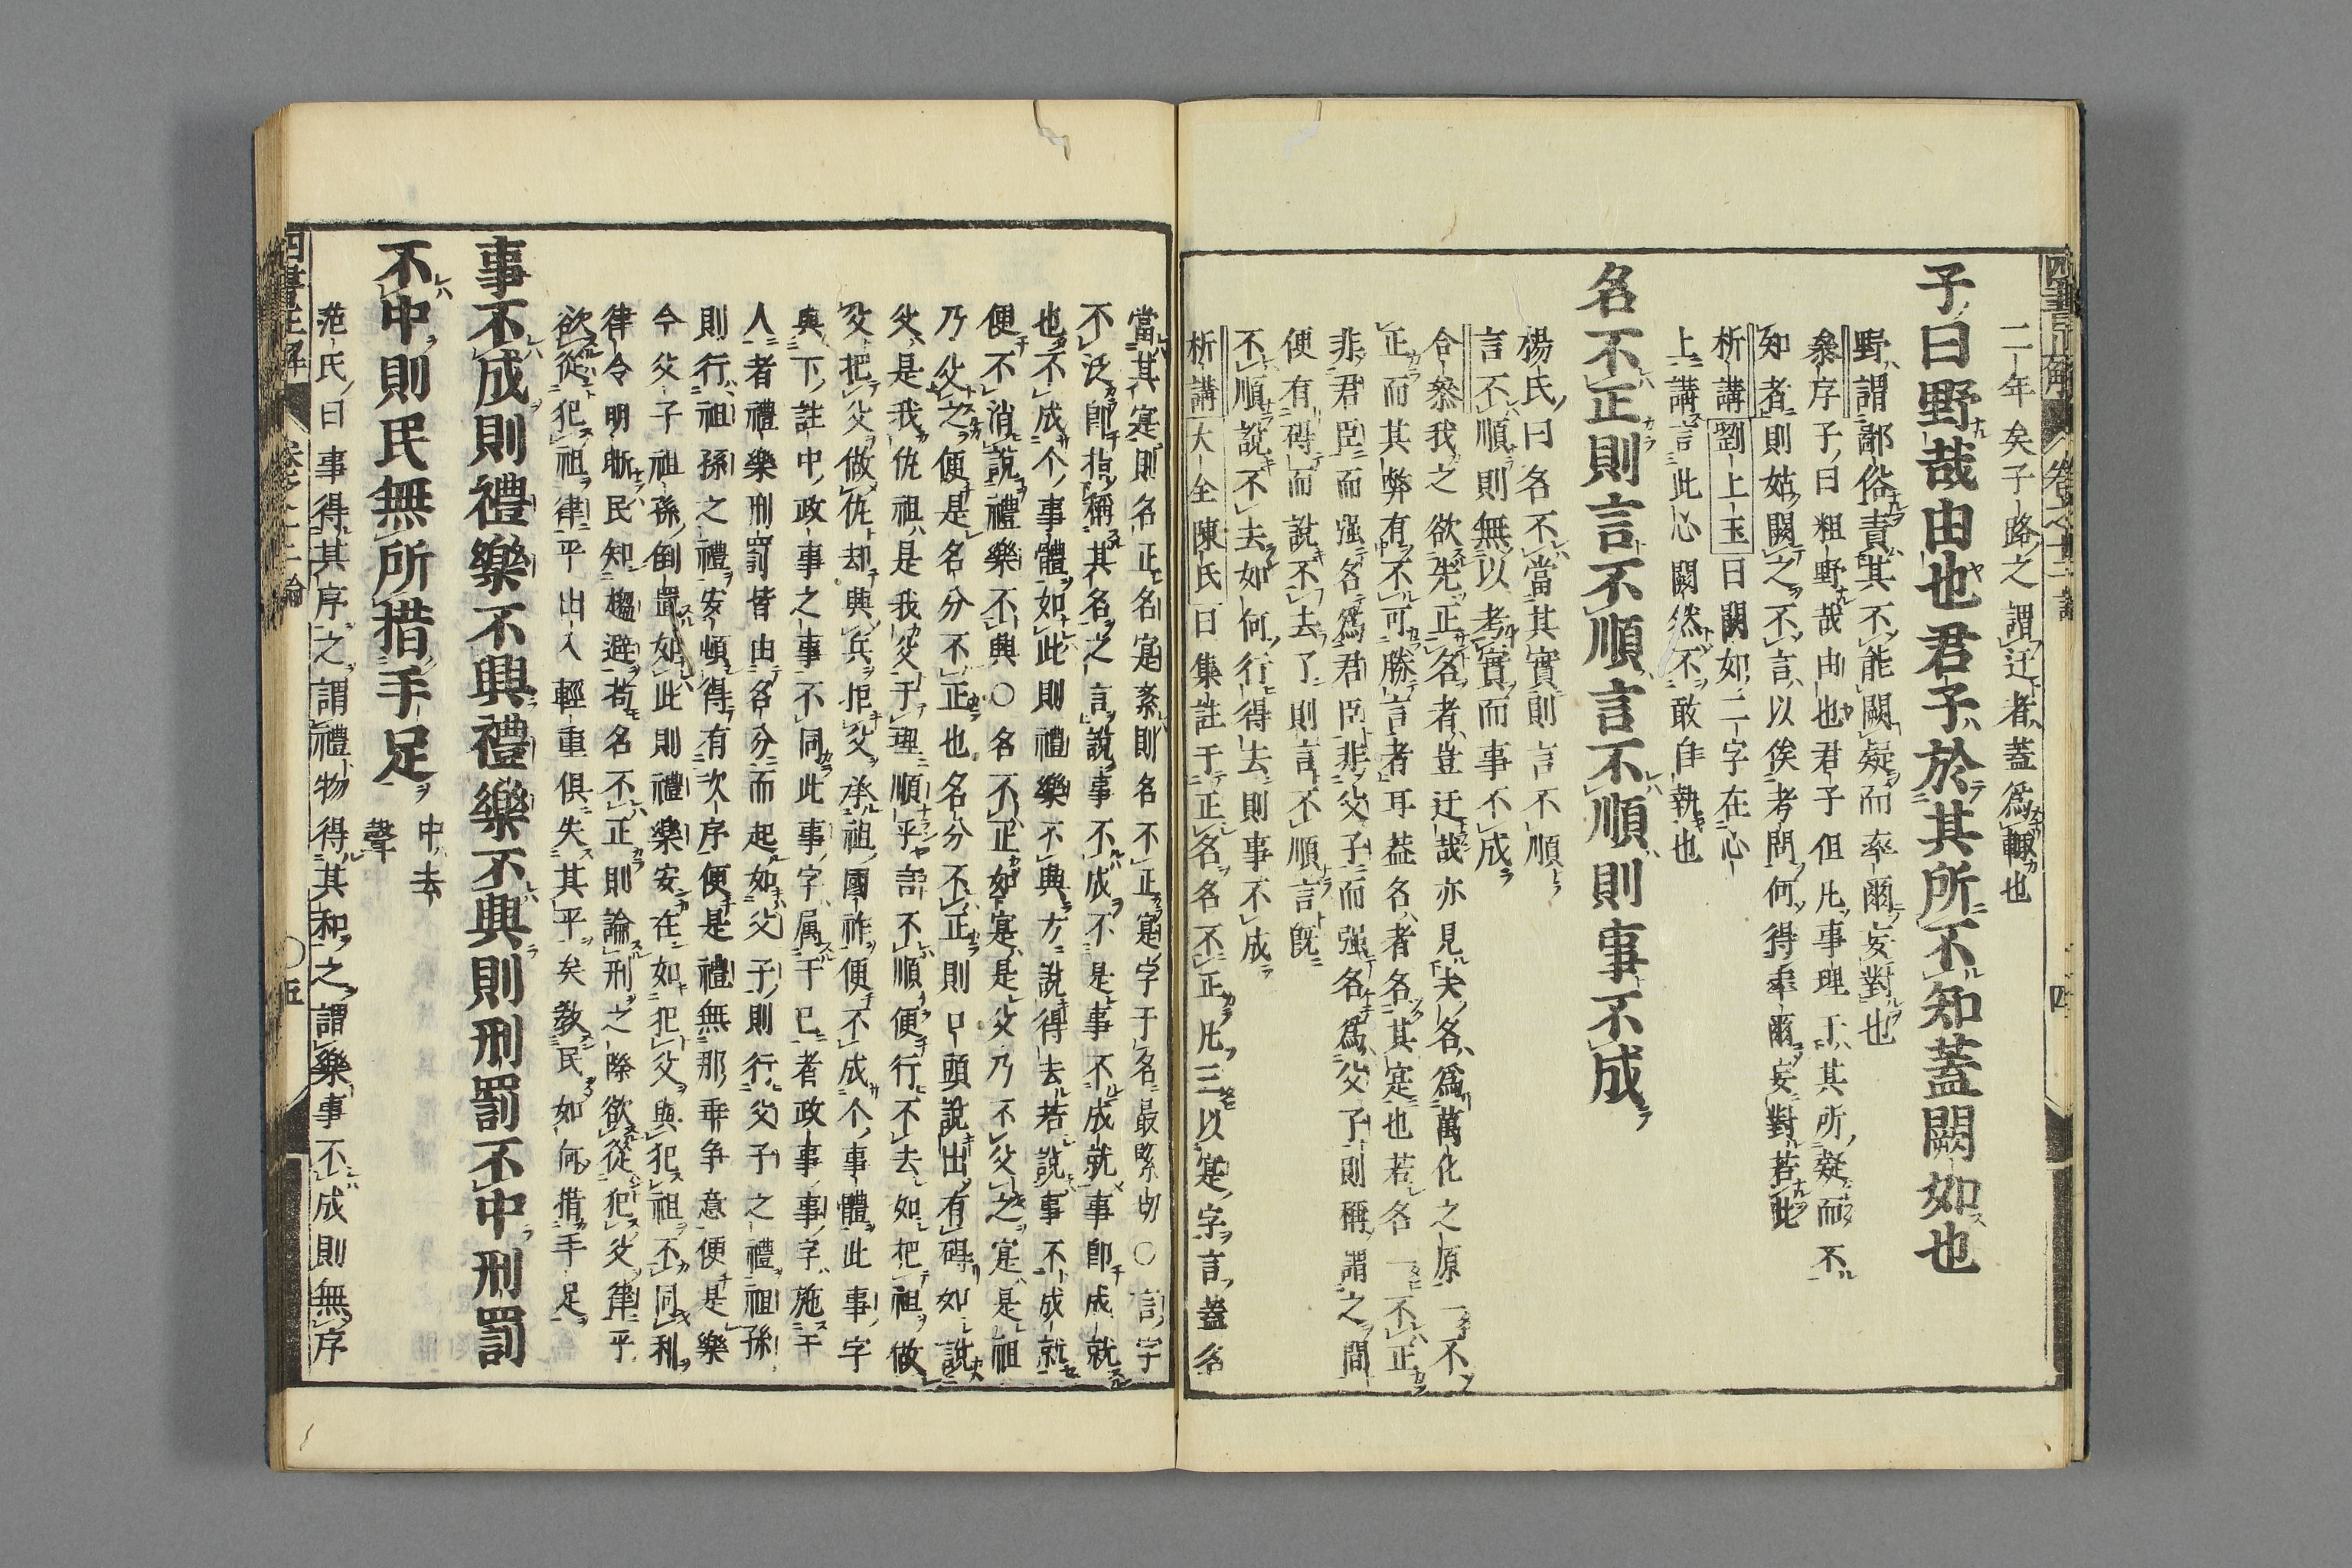 二年矣子路之謂迂者蓋爲輙也
子曰野哉由也君子於其所不知蓋闕如也
野謂鄙俗責其不能闕疑而率爾妄對也
叅序子曰粗野哉由也君子但凡事理于其所疑而不
知者則姑闕之不言以俟考問何得率爾妄對若此
析講劉上玉曰闕如二字在心
上講言此心闕然不敢自執也
名不正則言不順言不順則事不成
楊氏曰名不當其實則言不順
言不順則無以考實而事不成
合叅我之欲先正名者豈迂哉亦見夫名爲萬化之原一不
正而其弊有不可勝言者耳葢名者名其寔也若名一不正
非君臣而强名爲君臣非父子而强名爲父子則稱謂之間
便有碍而說不去了則言不順言旣
不順說不去如何行得去則事不成
析講大全陳氏曰集註于正名名不正凡三以寔字言蓋名
當其寔則名正名寔紊則名不正寔字于名最緊切○言字
不泛卽指稱其名之言說事不成不是事不成就事卽成就
也不成个事體如此則禮樂不興方說得去若說事不成就
便不消說禮樂不興○名不正如寔是父乃不父之寔是祖
乃父之便是名分不正也名分不正則口頭說出有碍如說
父是我仇祖是我父于理順乎言不順便行不去如把祖做
父把父做仇却興兵拒父承祖國祚便不成个事體此事字
與下註中政事之事不同此事字属于已者政事事字施于
人者禮樂刑罰皆由名分而起如父子則行父子之禮祖孫
則行祖孫之禮安頓得有次序便是禮無那乖争意便是樂
今父子祖孫倒置如此則禮樂安在如犯父與犯祖不同科
律令明晰民知趨避苟名不正則論刑之際欲從犯父律乎
欲從犯祖律乎出入輕重俱失其平矣教民如何措手足
事不成則禮樂不興禮樂不興則刑罰不中刑罰
不中則民無所措手足
中去
聲
范氏曰事得其序之謂禮物得其和之謂樂事不成則無序